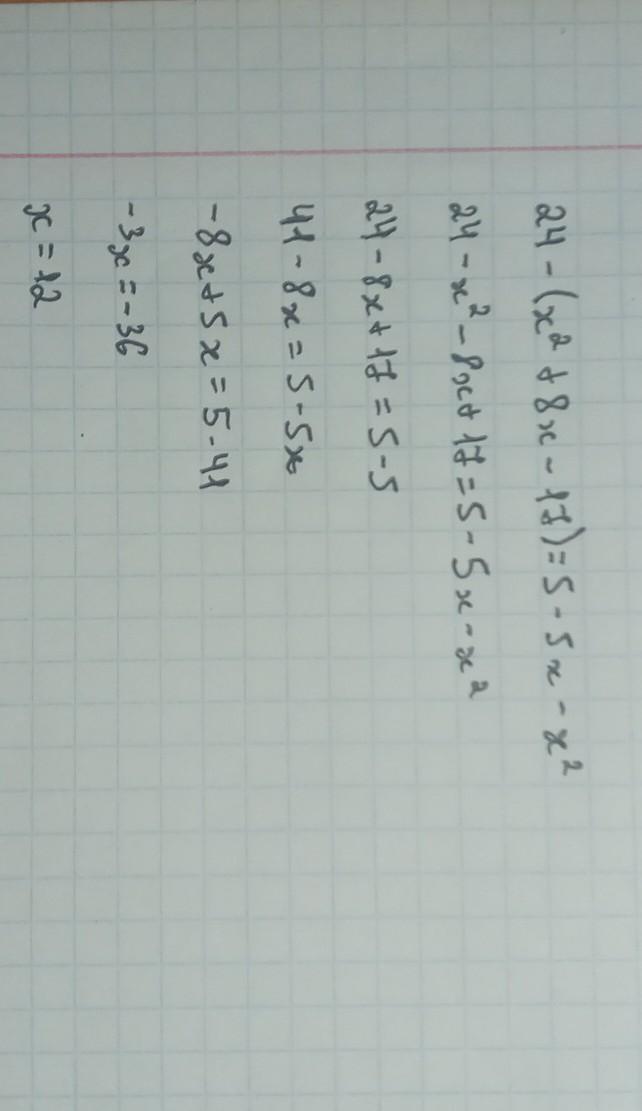 24 - (x² + 8x - 17) = 5 - 5x - x²
24 - x² - 8x + 17 = 5 - 5x - x²
24 - 8x + 17 = 5 - 5
41 - 8x = 5 - 5x
-8x + 5x = 5 - 41
-3x = -36
x = 12